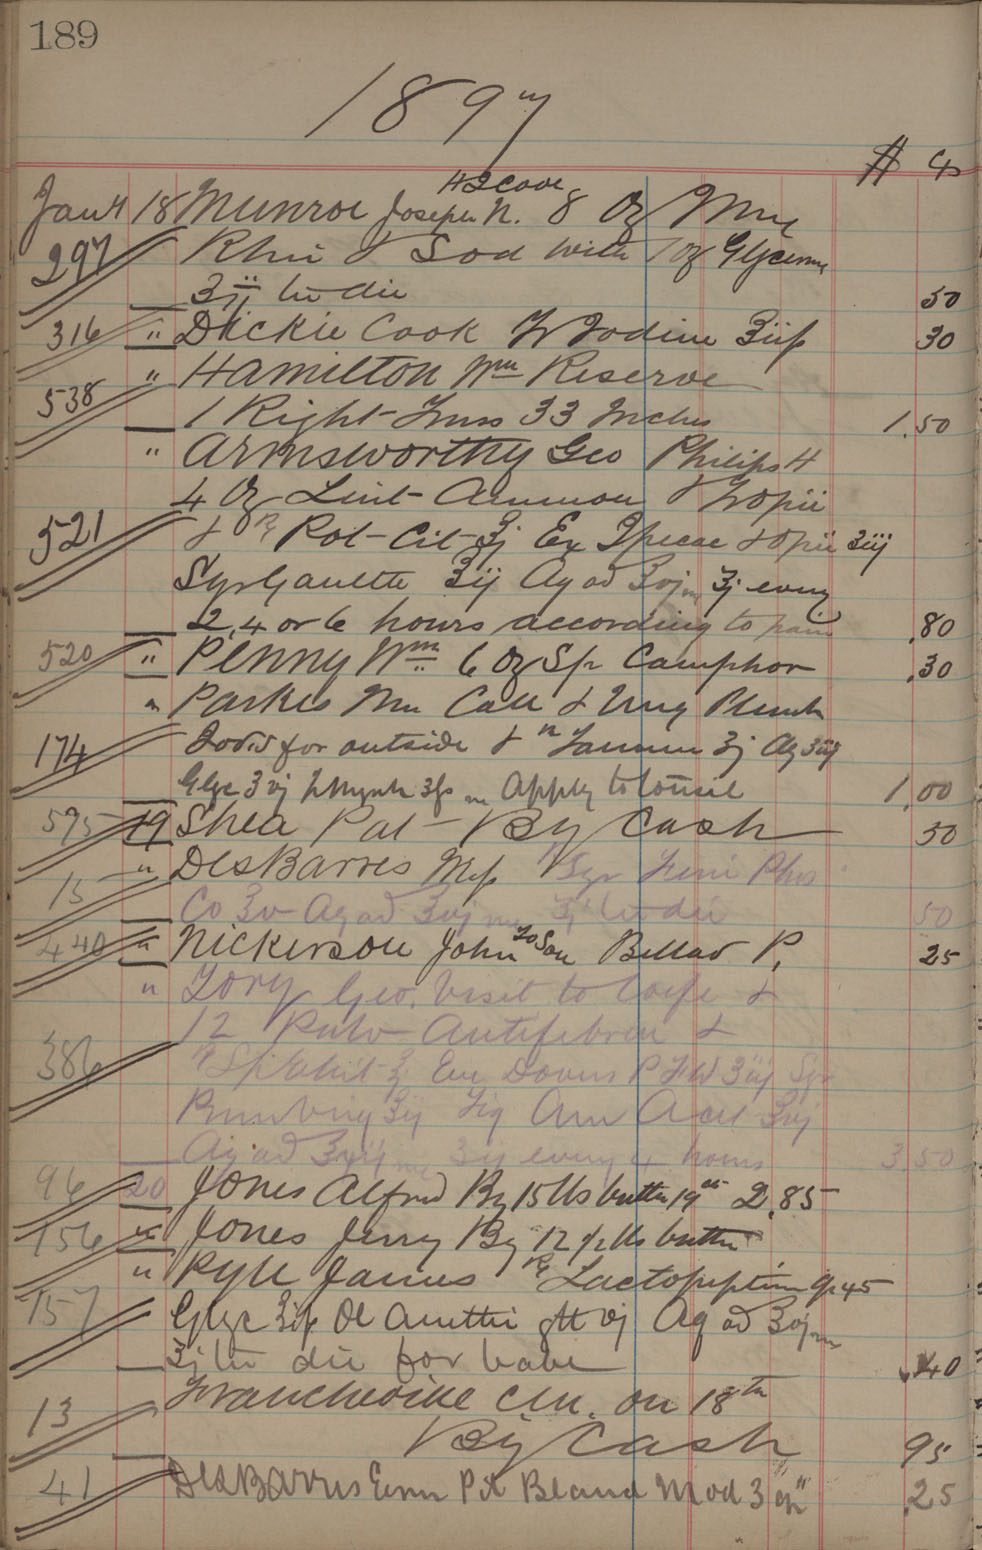 189
1897
$ cs
Jany 18 Munroe Joseph N. H I Cove 8 Oz Mix
297 Rhii & Sod with 1 oz Glycerine
ʒij ter die 50
316 " Dickie Cook Tr Iodine ℥iiſs 30
" Hamilton Wm Reserve
538 1 Right Truss 33 Inches 1.50
" Armsworthy Geo Philips H
4 Oz Lint Ammon & Tr Opii
521 & ℞ Pot-Cit ℥j Ex Ipecac & Opii ʒiij
Syr ʒij Aq ad ℥vj m ʒj every
2, 4 or 6 hours according to pain .80
520 " Penny Wm 6 Oz Sp Camphor .30
" Parkes Wm Call & Ung Plumb
174 Iod for outside & ℞ Tannin ʒj Aq
Glyc ʒvj Tr Myrrh ʒſs m Apply to tonsil 1.00
595 19 Shea Pat By Cash 50
" DesBarres Mrs ℞ Syr Ferri Phos
15 Co ℥v Aq ad ℥vj m ʒj ter die 50
440 " Nickerson John To Son Bellad P. 25
" Tory Geo. Visit to Wife &
12 Pulv Antifebrin &
386 ℞ Sp Nit Eve Dovers P
Prun Virg ʒij Liq Am Acet ℥iij
Aq ad m ʒij every 4 hours 3.50
96 20 Jones Alfred By 15 lbs butter 19cts 2.85
156 " Jones Jerry By 12 ½ lbs butter
" Pyle James ℞ Lactopeptin gr 45
157 Glyc Ol Anethi gtt vj Aq ad ℥vj m
ʒj ter die for babe .40
Francheville Cln. on 18th
13 By Cash 95
41 DesBarres Pil Bland Mod 3 .25